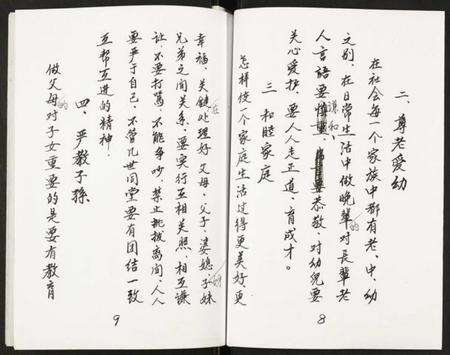 二、尊老爱幼
在社会每一个家族中都有老、中、幼
之别，在日常生活中做晚辈的对長輩老
人言語要温和、恭敬，对幼兒要
关心爱护，要人人走正道，育成才。
三、和睦家庭
怎样使一个家庭生活过得更美好更
幸福，关键在处理好父母、父子、婆媳、子妹
兄弟之间关系，要实行互相关照，相互谦
让，不要打罵，不能争吵，禁止挑拨离间，人人
要严于自己，不管几世同堂要有团结一致
互帮互进的精神。
四、严教子孫
做父母的对子女重要的是要有教育
8
9